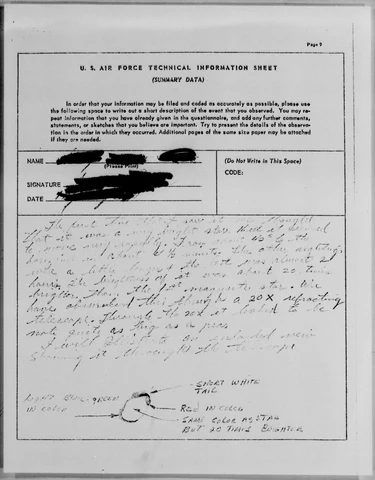 Page 9
U. S. AIR FORCE TECHNICAL INFORMATION SHEET
(SUMMARY DATA)
In order that your information may be filed and coded as accurately as possible, please use
the following space to write out a short description of the event that you observed. You may re-
peat information that you have already given in the questionnaire, and add any further comments,
statements, or sketches that you believe are important. Try to present the details of the observa-
tion in the order in which they occurred. Additional pages of the same size paper may be attached
if they are needed.
NAME
(Please Print)
SIGNATURE
DATE
(Do Not Write in This Space)
CODE:
The first time I saw it we thought
that it was a very bright star. But it seemed
to move very rapidly. From about 45° to the
horizon in about minutes. The other sighting,
was a little longer, the last was almost 2
hours. The brightness of it was about 20 times
brighter than the 1st magnitude star. We
have observed this through a 20X refracting
telescope. Through the 20X it looked to be
quite as big as a pea.
I will illustrate an
showing it through the telescope
SHORT WHITE
TAIL
BLUE-GREEN
IN COLOR
RED IN COLOR
SAME COLOR AS STAR
BUT 20 TIMES BRIGHTER